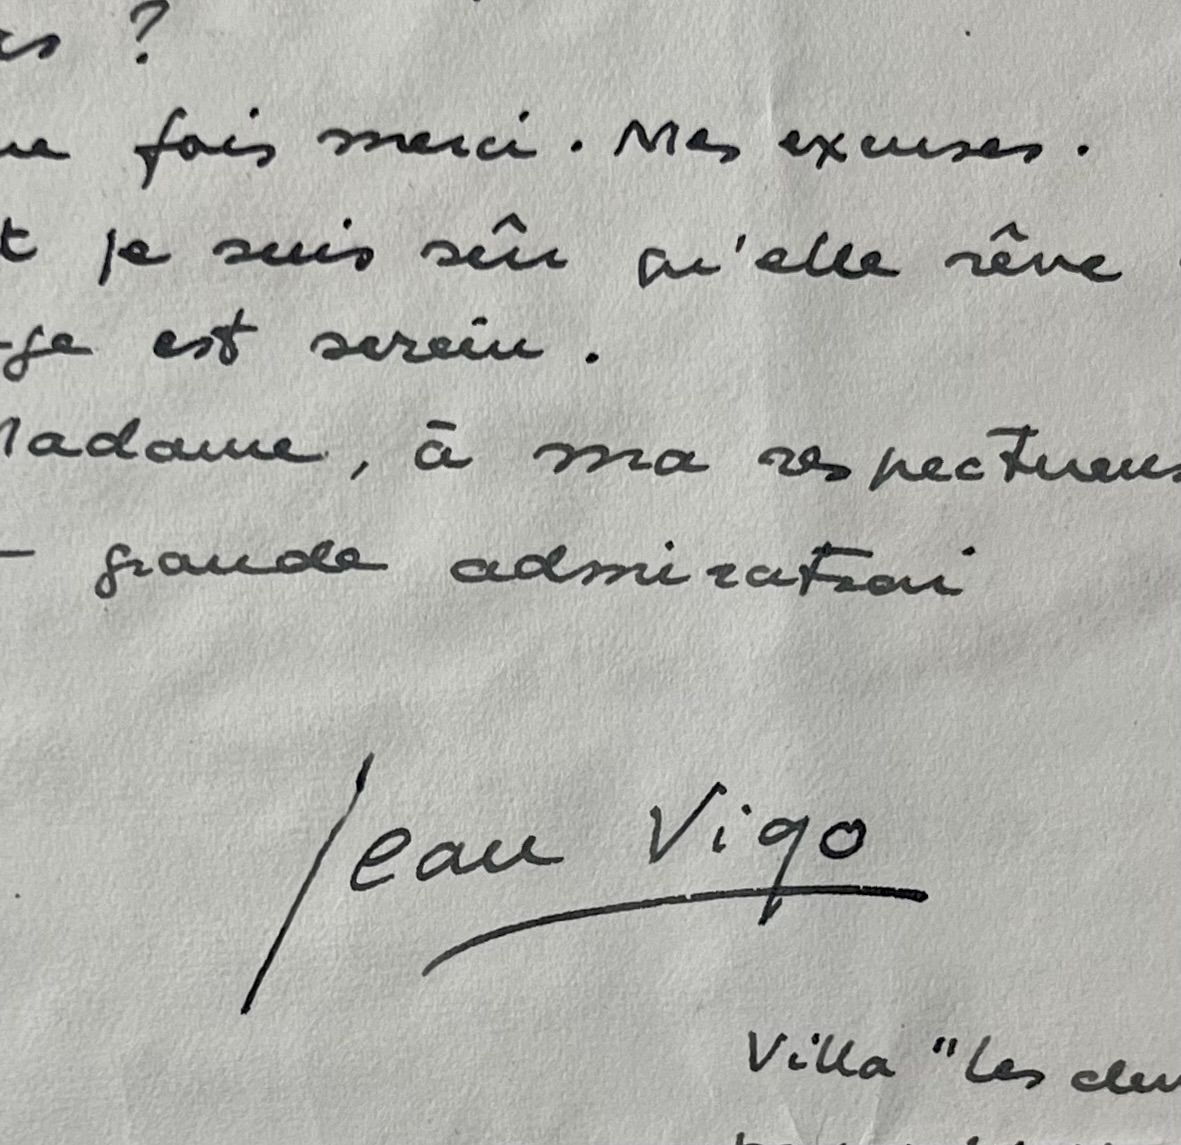 as ?
ne fois merci. Mes excuses.
t je suis sûr qu'elle rêve
ge est serein.
Madame, à ma respectueus
grande admiration
Jean Vigo
Villa "les deu